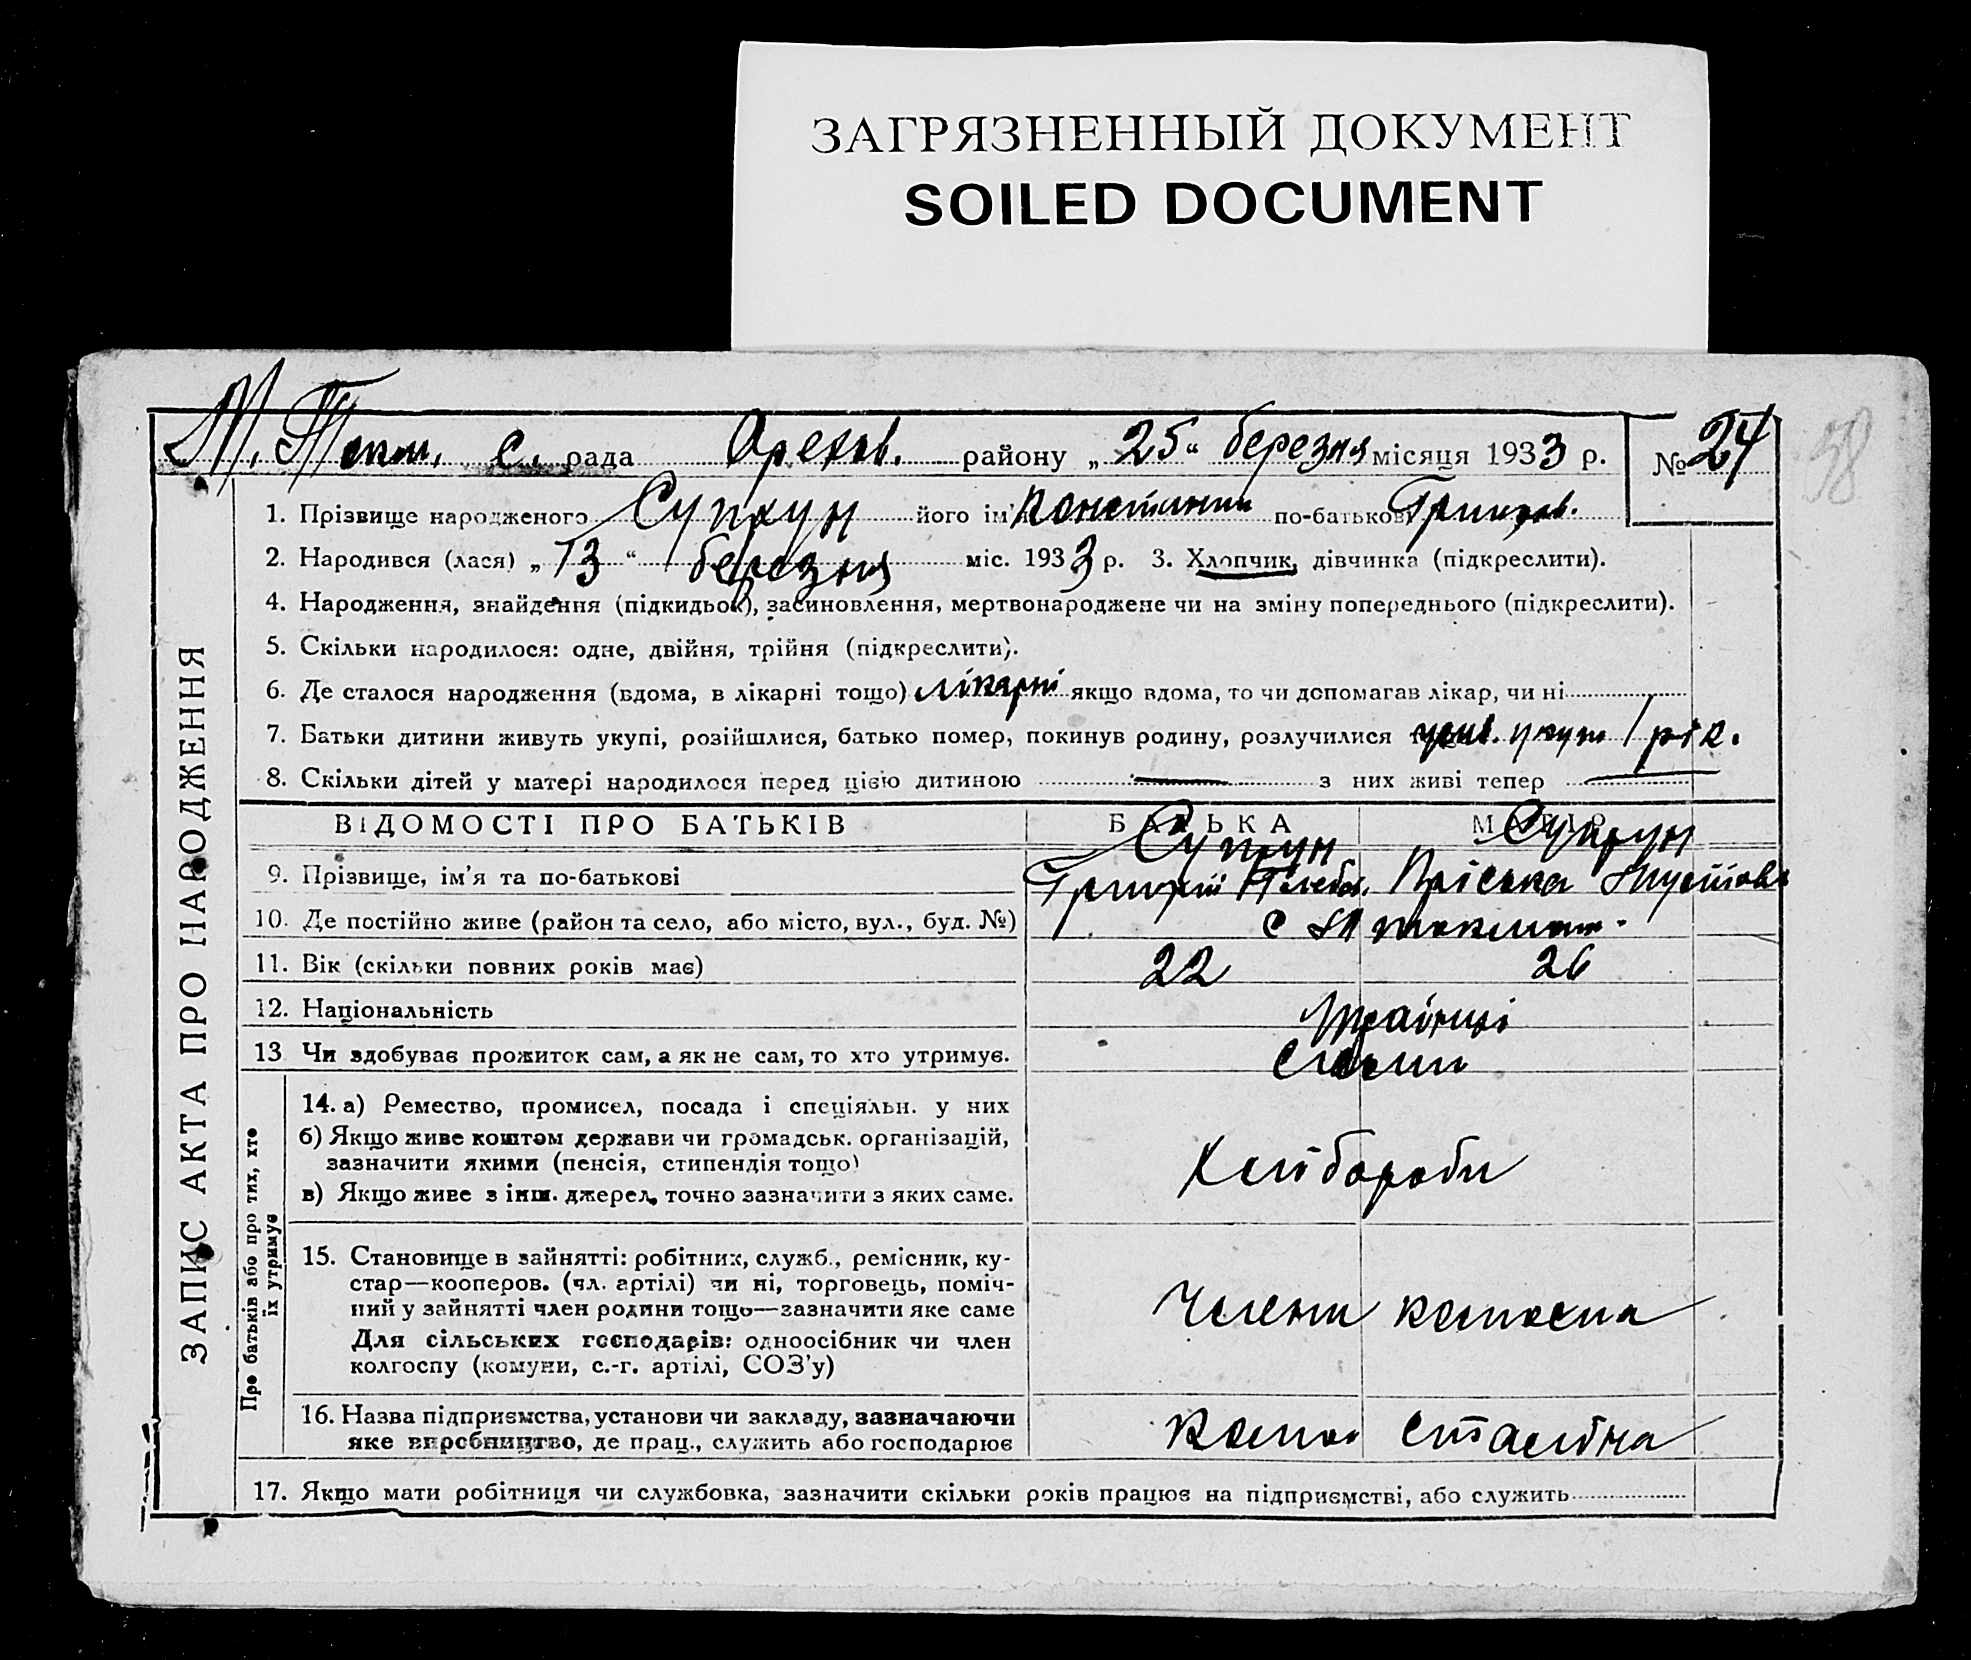 ЗАГРЯЗНЕННЫЙ ДОКУМЕНТ
SOILED DOCUMENT
М. Токм. с. рада Орехов. району „25“ березня місяця 1933 р. № 24
58
1. Прізвище народженого Супрун його ім'я Констянтин по-батькові Григоров.
2. Народився (лася) „13“ березня міс. 1933 р. 3. Хлопчик, дівчинка (підкреслити).
4. Народження, знайдення (підкидьок), засиновлення, мертвонароджене чи на зміну попереднього (підкреслити).
5. Скільки народилося: одне, двійня, трійня (підкреслити).
6. Де сталося народження (вдома, в лікарні тощо) лікарні якщо вдома, то чи допомагав лікар, чи ні
7. Батьки дитини живуть укупі, розійшлися, батько помер, покинув родину, розлучилися укуп 1 рік.
8. Скільки дітей у матері народилося перед цією дитиною — з них живі тепер —
ВІДОМОСТІ ПРО БАТЬКІВ БАТЬКА МАТІР
Супрун Супрун
9. Прізвище, ім'я та по-батькові Григорій Пріська
10. Де постійно живе (район та село, або місто, вул., буд. №) с М Токмач.
11. Вік (скільки повних років має) 22 26
12. Національність Українці
13 Чи здобуває прожиток сам, а як не сам, то хто утримує. Сами
ЗАПИС АКТА ПРО НАРОДЖЕННЯ
Про батьків або про тих, хто їх утримує
14. а) Ремество, промисел, посада і спеціяльн. у них
б) Якщо живе коштом держави чи громадськ. організацій,
зазначити якими (пенсія, стипендія тощо)
в) Якщо живе з інш. джерел, точно зазначити з яких саме.
Хлібороби
15. Становище в зайнятті: робітник, служб., ремісник, ку-
стар—кооперов. (чл. артілі) чи ні, торговець, поміч-
ний у зайнятті член родини тощо—зазначити яке саме
Для сільських господарів: одноосібник чи член
колгоспу (комуни, с.-г. артілі, СОЗ'у)
Члени колгоспа
16. Назва підприємства, установи чи закладу, зазначаючи
яке виробництво, де прац., служить або господарює
Сталіна
17. Якщо мати робітниця чи службовка, зазначити скільки років працює на підприємстві, або служить